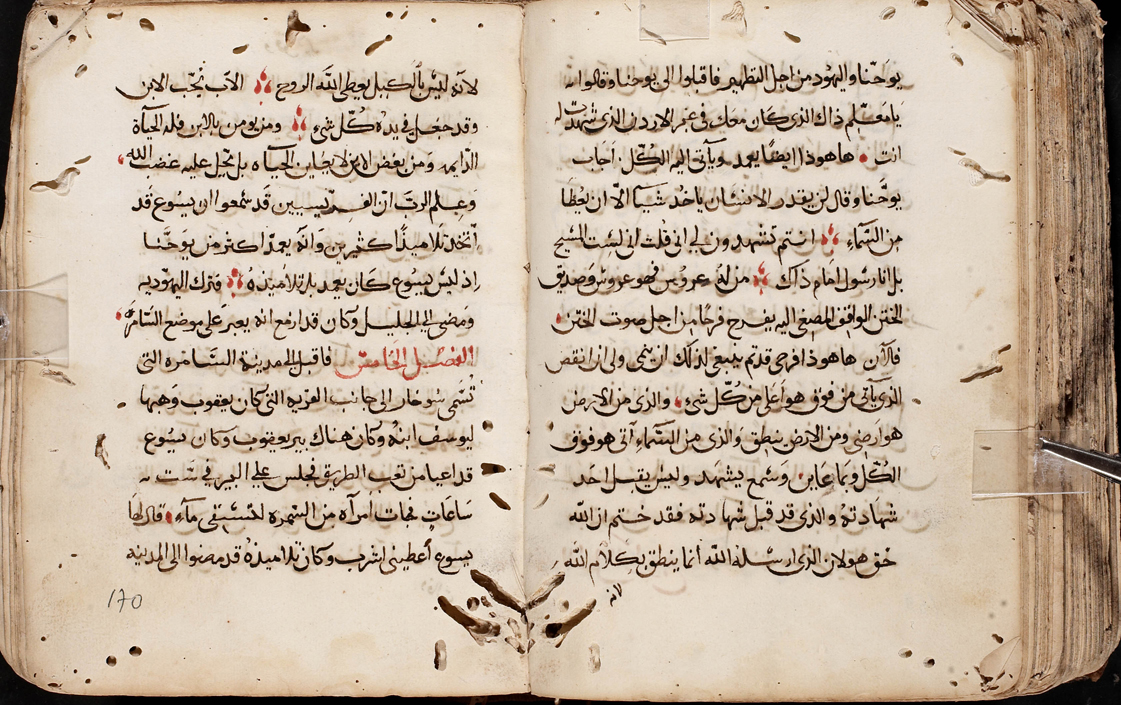 يوحنا واليهود من اجل التطهير فاقبلوا الى يوحنا وقالوا له
يا معلم ذاك الذى كان معك فى عبر الاردن الذى شهدت له
انت هاهوذا ايضًا يعمد ويأتى اليه الكل اجاب
يوحنا وقال لن يقدر الانسان ياخد شيا الّا ان يعطا
من السماءِ انتم تشهدون لى انى قلت انى لست المسيح
بل انا رسول امام ذاك من له عروس فهو عروس وصديق
الختن الواقف المصغى اليه يفرح فرحًا من اجل صوت الختن
فالآن هاهوذا فرحى قد تم ينبغى لذلك ان ينمى ولى انا انقص
الذى يأتى من فوق هو اعلى من كل شىءٍ والذى من الارض
هو ارضى ومن الارض ينطق والذى من السماءِ آتى هو فوق
الكل وبما عاين وسمع يشهد وليس يقبل احد
شهادته والذى قد قبل شهادته فقد ختم ان الله
حق هو لان الذى ارسله الله انما ينطق بكلام الله
لانه
لانه ليس بالكيل يعطى الله الروح الآب يحب الابن
وقد جعل فى يده كل شىءٍ ومن يومن بالابن فله الحياة
الدايمه ومن يعض الابن لا يعاين الحياه بل تحل عليه غضب الله
وعلم الرب ان الفريسيين قد سمعوا ان يسوع قد
أتخذ تلاميذًا كثيرين وانه يعمد اكثر من يوحنا
اذ ليس يسوع كان يعمد بل تلاميذه فترك اليهوديه
ومضى الى الجليل وكان قد ازمع انه يعبر على موضع السامرة
الفصل الخامس فاقبل الى مدينة السامره التى
تسمى سوخار الى جانب القريه التى كان يعقوب وهبها
ليوسف ابنه وكان هناك بير يعقوب وكان يسوع
قد اعيا من تعب الطريق فجلس على البير فى ست
ساعات فجات امرأه من السمره لتستقى ماءِ قال لها
يسوع أعطينى اشرب وكان تلاميذه قد مضوا الى المدينه
170